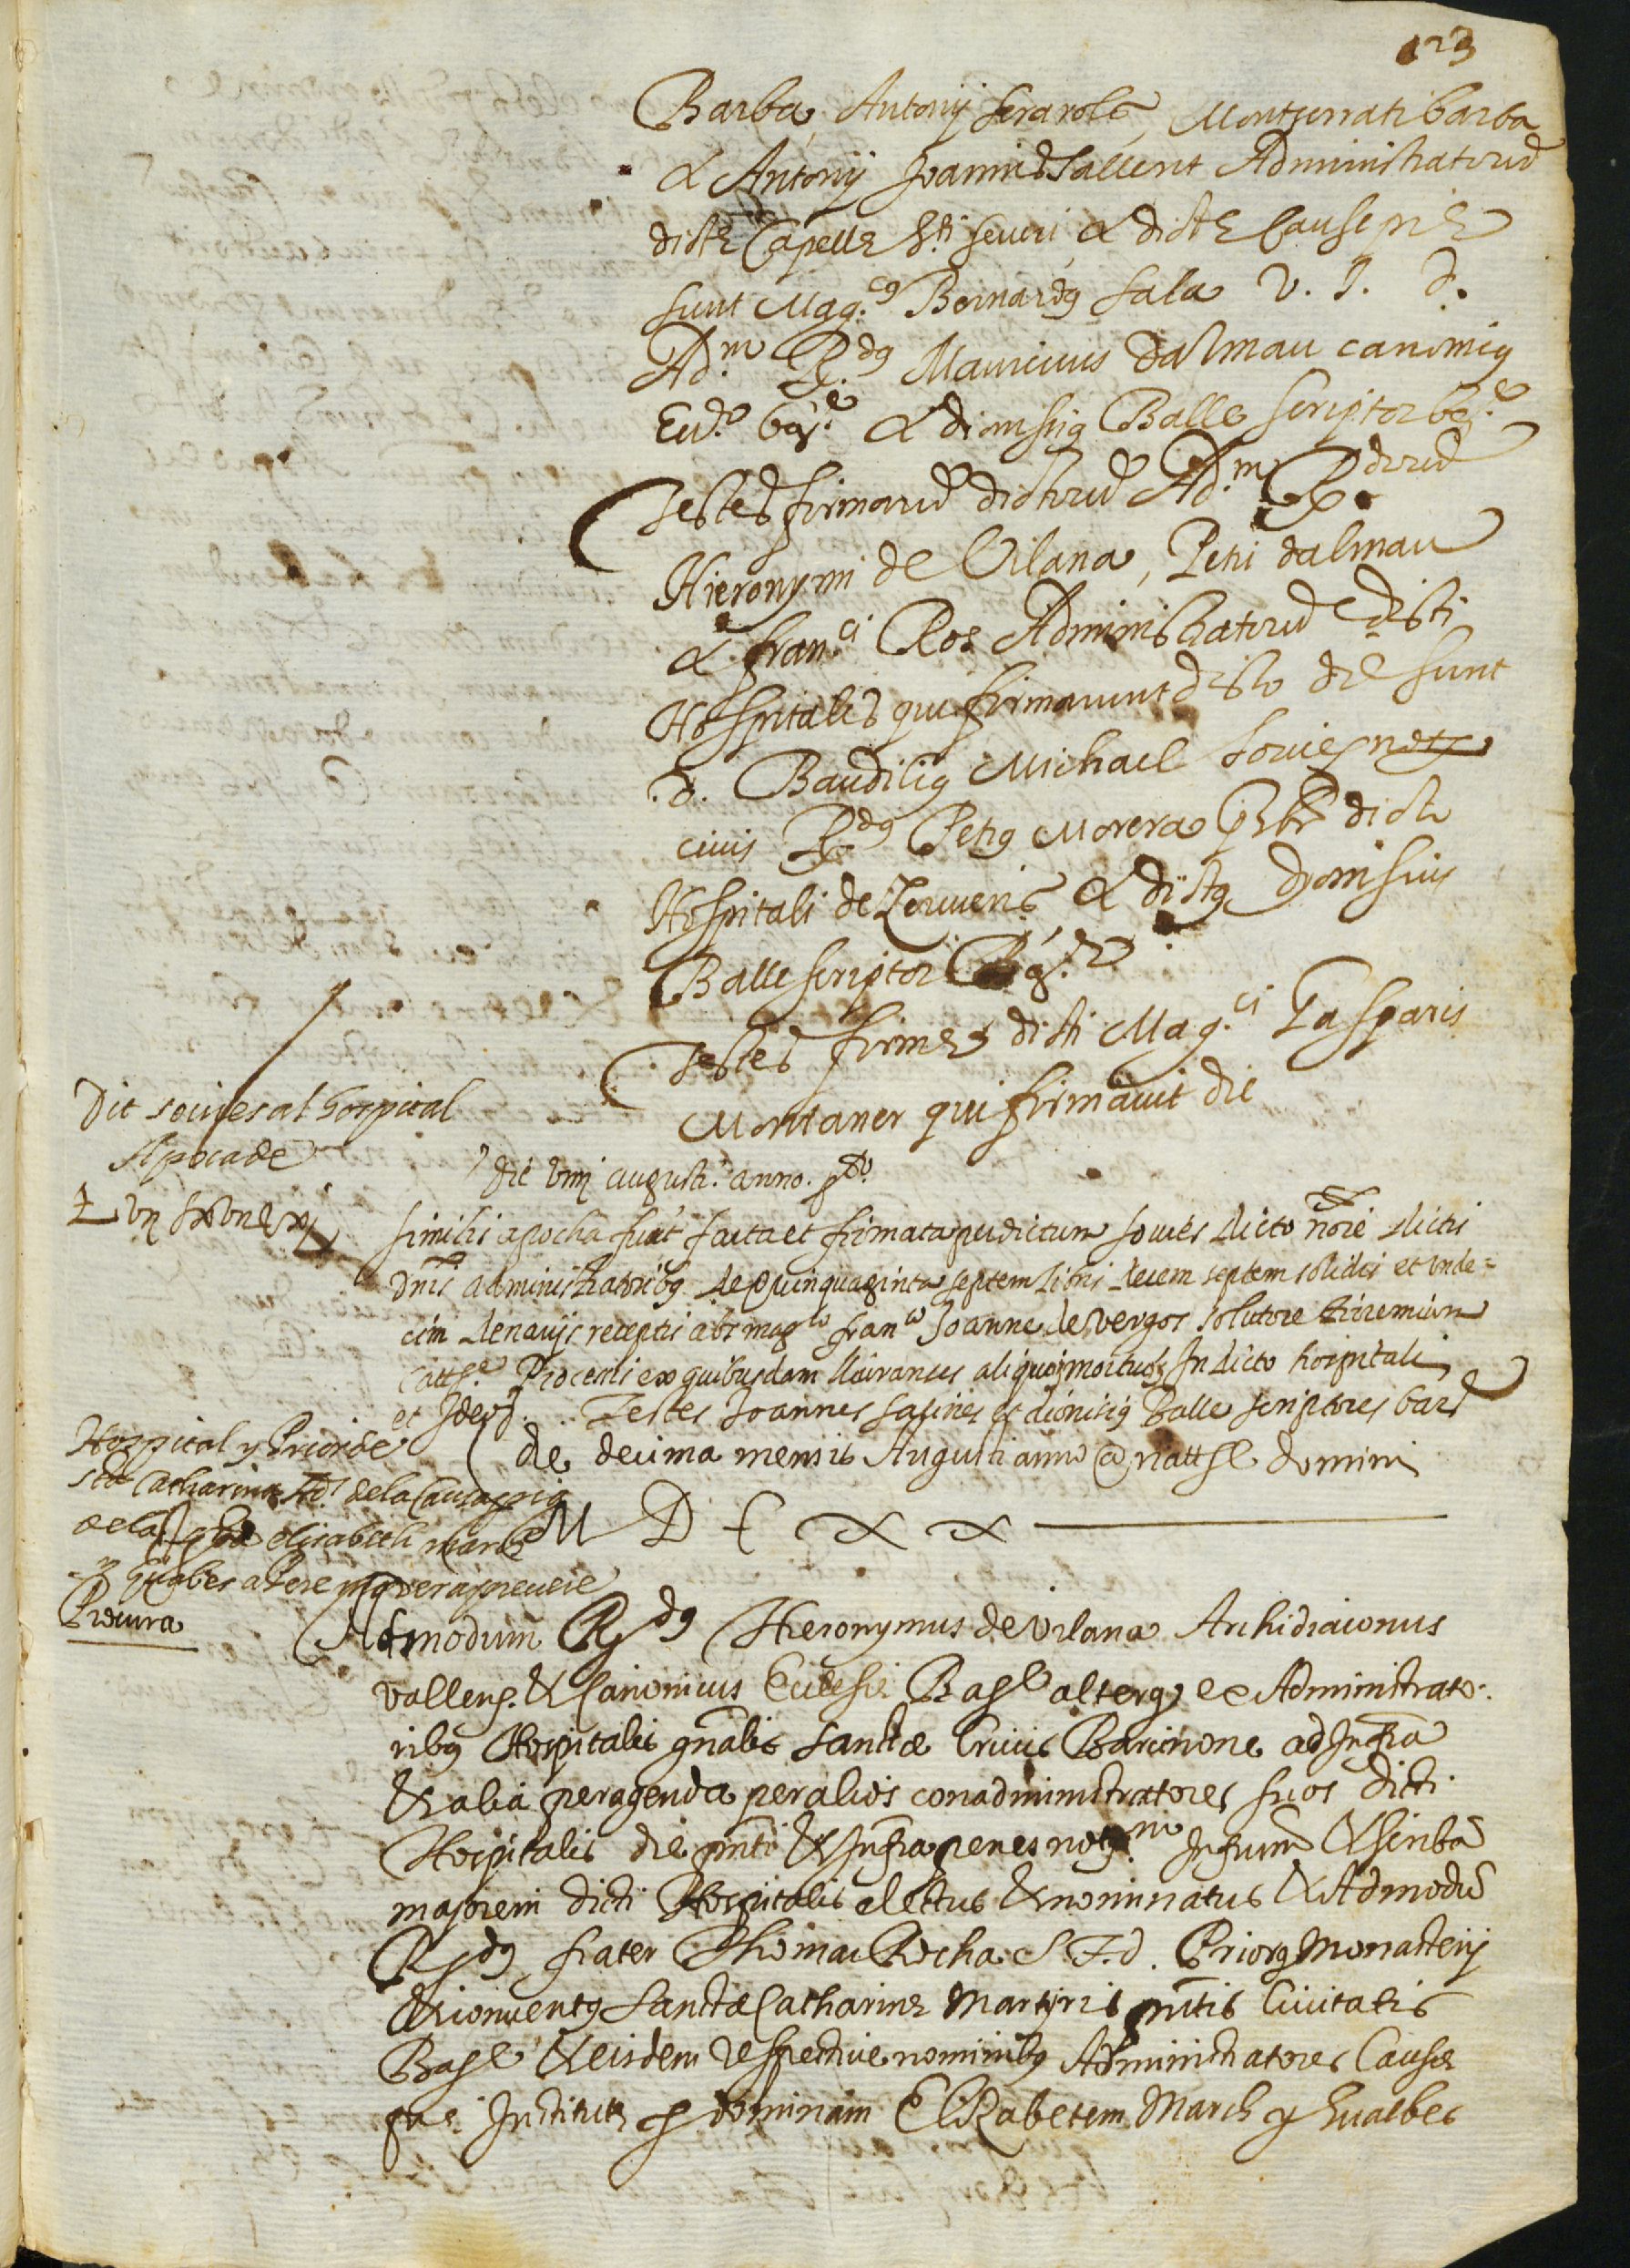 123
Barba, Antonij ferarols, Montserrati barba
& Antonij Joannis sallent Administratorũ
dictę Capellę S.ti seueri & dictę Causę pię
sunt Mag.cus Bernardus sala V. J. d.
Ad.m R.dus Mauricius dalmau canonicus
& dionisius Balle scriptor
Testes firmarũ dictorũ Ad.m R.dorũ
Hieronymi de Vilana, Petri dalmau
& fran.ci Ros Administratorũ dicti
Hospitalis qui firmarunt dicto die sunt
.d. Baudilius Michael
ciuis R.dus Petrus Morera dicto
Hospitali & dictus dionisius
Balle scriptor
Testes firmę dicti Mag.ci Gasparis
Montaner qui firmauit die
Dit souies al hospital
Apoca de
die viiij augusti anno
similis apocha fuit facta et firmata per dictum souies dicto nõre dictis
dnis administratoribus de Quinquaginta septem libris decem septem solidis et unde=
cim denarijs receptis abs mag.co fran.co Joanne de vergos solutore
Procerli ex quibusdam aliquos mortuos In dicto hospitali
et Ideo .. Testes Joannes salines & dionisius Balle scriptores
Hospital y Prior de
sta Catharina Ad.s de la Causa pia
de la elisabeth march
y gualbes a Pere
Procura
die decima mensis Augusti anno a natte domini
M D C X X
Admodum Rdus Hieronymus de vilana Archidiaconus
vallens. & Canonicus Ecclesię alterque ex Administrato-
ribus Hospitalis gnãlis sanctæ Crucis Barcinone ad Infra
& alia peragenda per alios conadministratores suos dicti
Hospitalis die pñti & Infra penes not.m Infrum & scribã
majorem dicti Hospitalis electus & nominatus & Admodũ
Rdus frater Thomas Rocha S.T.d. Prior Monasterij
& conuentus Sanctæ Catharinę Martyris pñtis Ciuitatis
& eisdem respectiue nominibus Administratores Causę
pię Institutę per dominam Elizabetem March y Gualbes